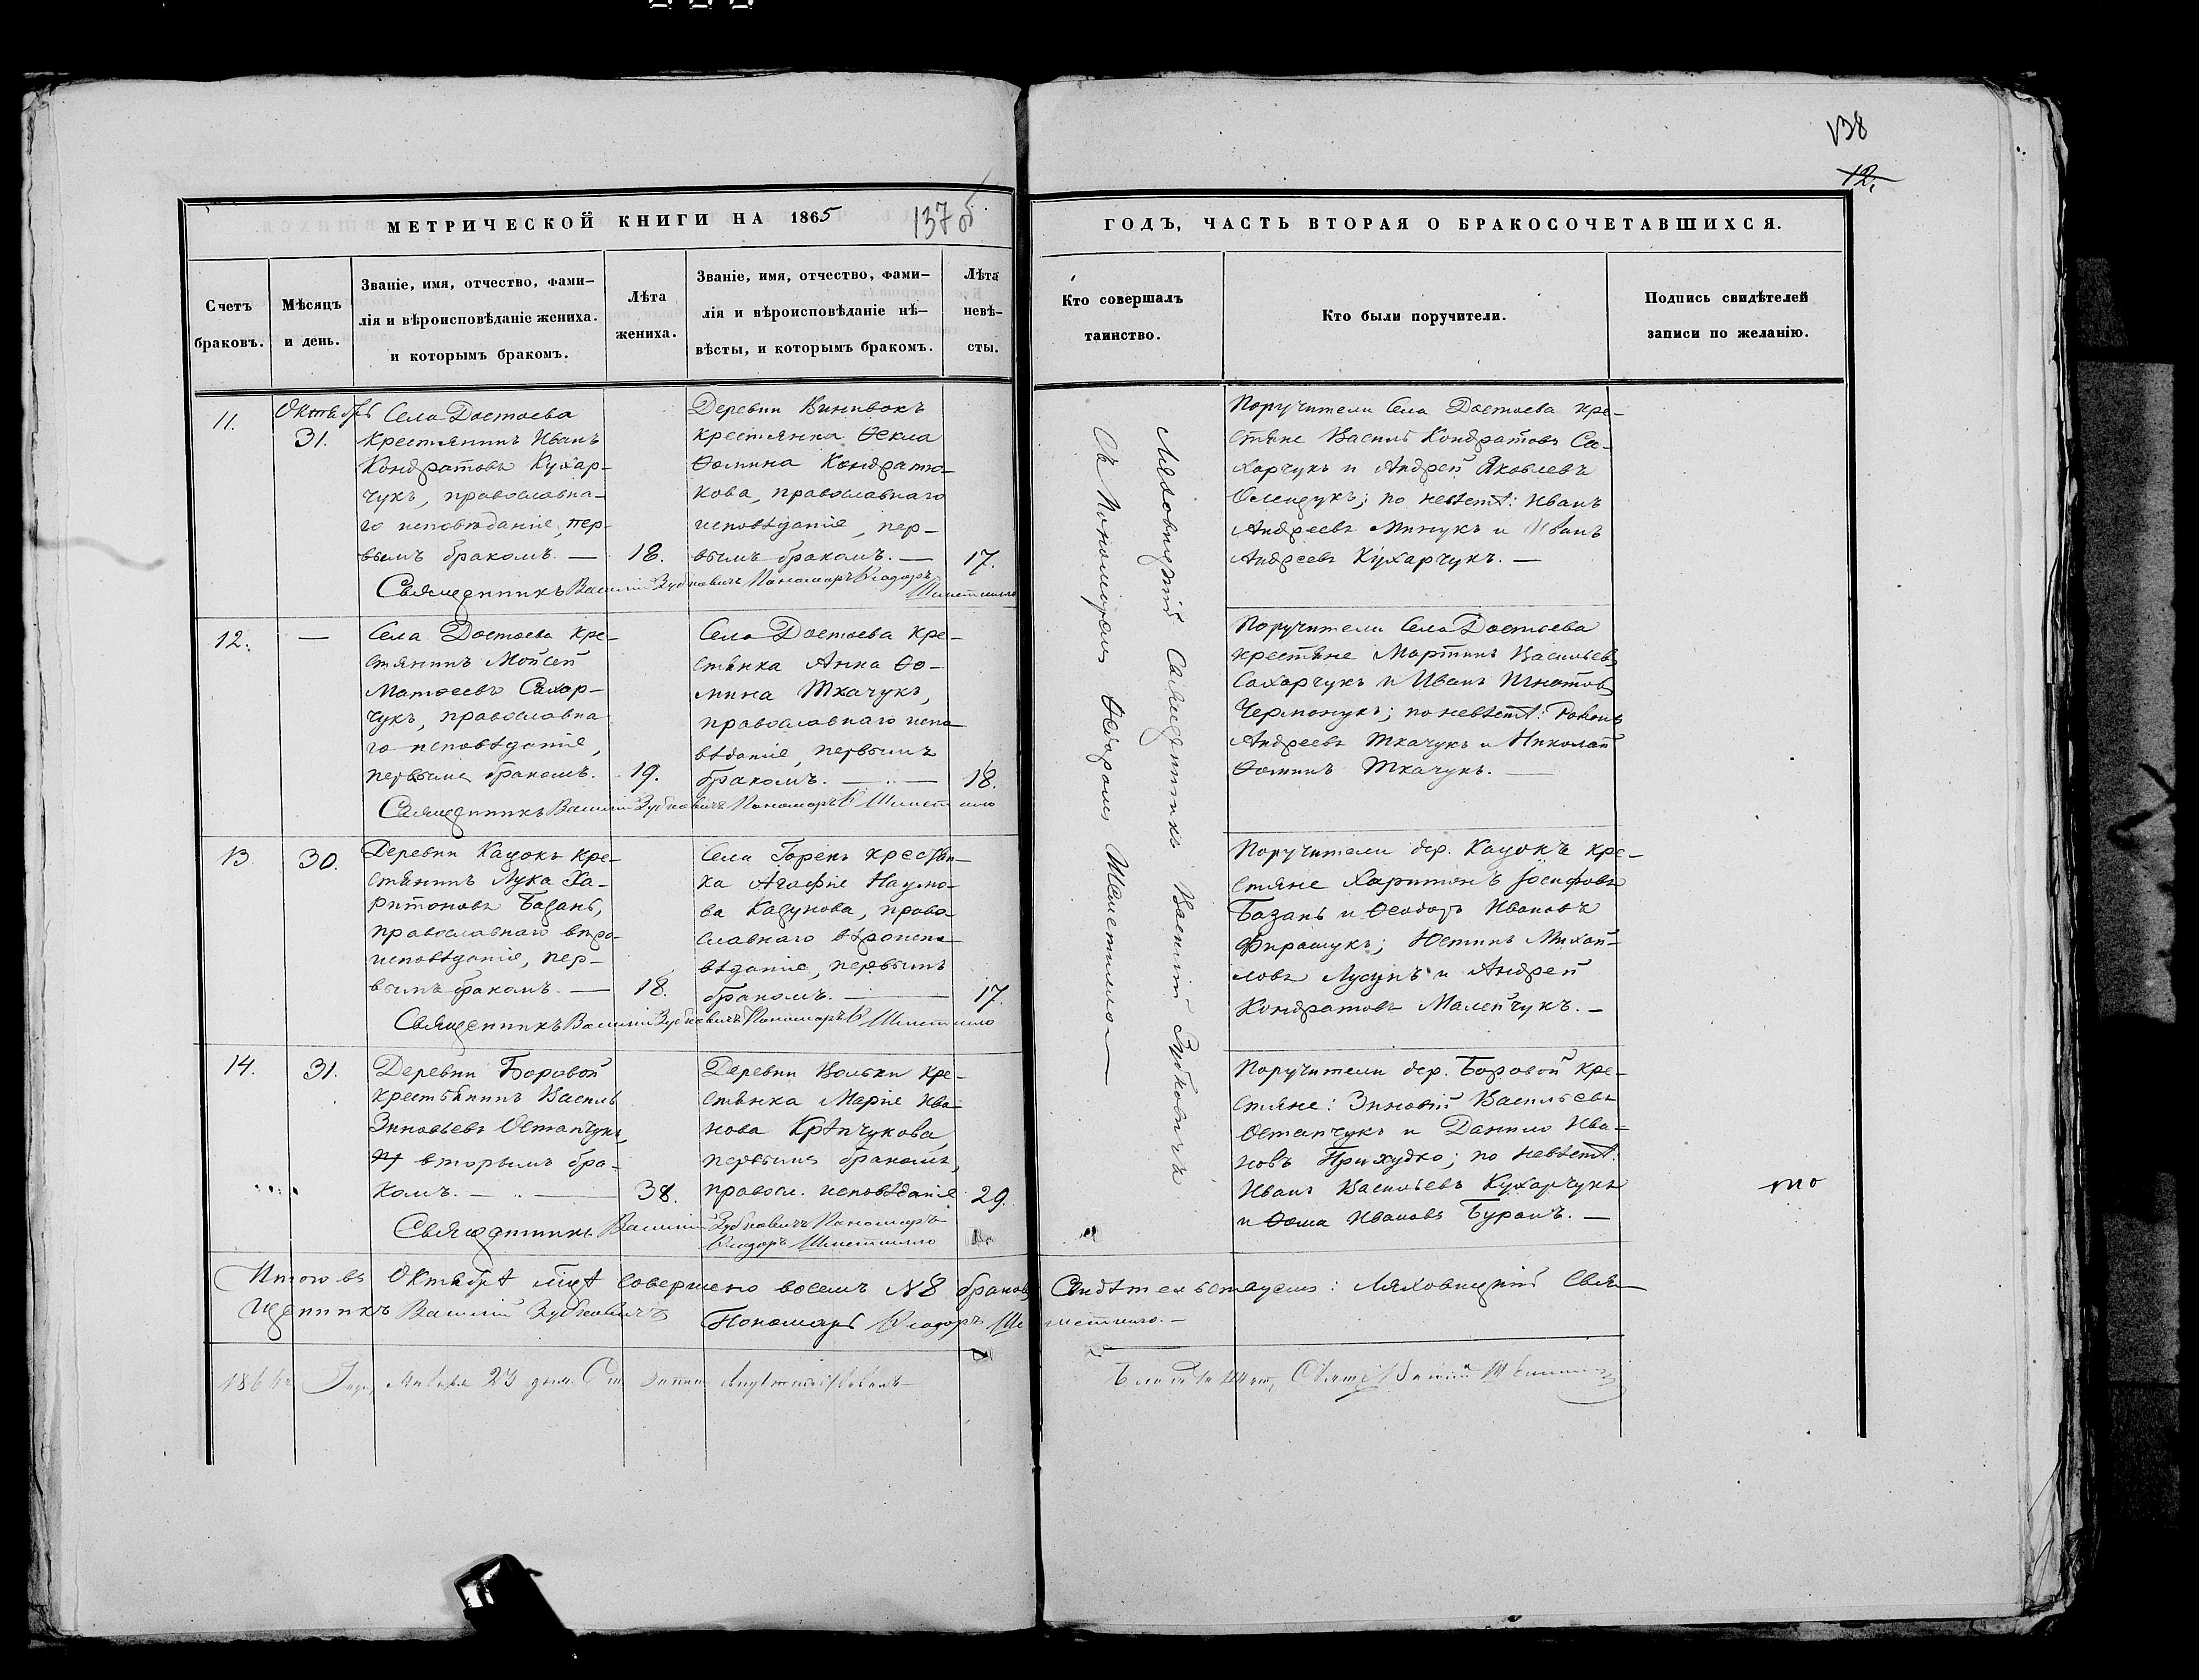 138
12.
МЕТРИЧЕСКОЙ КНИГИ НА 1865
137 об
ГОДЪ, ЧАСТЬ ВТОРАЯ О БРАКОСОЧЕТАВШИХСЯ.
Счетъ
браковъ.
Мѣсяцъ
и день.
Званіе, имя, отчество, фами-
лія и вѣроисповѣданіе жениха.
и которымъ бракомъ.
Лѣта
жениха.
Званіе, имя, отчество, фами-
лія и вѣроисповѣданіе нѣ-
вѣсты, и которымъ бракомъ.
Лѣта
невѣ-
сты.
Кто совершалъ
таинство.
Кто были поручители.
Подпись свидѣтелей
записи по желанію.
11.
Октябрь
31.
Села Достоева
крестянинъ Иванъ
Кондратовъ Кухар-
чукъ, православна-
го исповѣданіе, пер-
вымъ бракомъ. —
18.
Деревни Винивокъ
крестянка Ѳекла
Ѳомина Кондратю-
кова, православнаго
исповѣданіе, пер-
вымъ бракомъ. —
17.
Священникъ Василій Зубковичъ Пономарь Ѳеодоръ
Шеметилло
Поручители Села Достоева кре-
стяне Василь Кондратовъ Са-
харчукъ и Андрей Яковлевъ
Олещукъ; по невѣстѣ: Иванъ
Андреевъ Минукъ и Иванъ
Андреевъ Кухарчукъ. —
12.
—
Села Достоева кре-
стянинъ Мойсей
Матѳеевъ Сахар-
чукъ, православна
го исповѣданіе,
первымъ бракомъ.
19.
Села Достоева кре-
стянка Анна Ѳо-
мина Ткачукъ,
православнаго испо
вѣданіе, первымъ
бракомъ. —
18.
Священникъ Василій Зубковичъ Пономарь Ѳ Шеметилло
Поручители Села Достоева
крестяне Мартинъ Васильевъ
Сахарчукъ и Иванъ Игнатовъ
по невѣстѣ:
Андреевъ Ткачукъ и Николай
Ѳоминъ Ткачукъ. —
13.
30.
Деревни Кацокъ кре-
стянинъ Лука Ха-
ритоновъ Базанъ,
православнаго вѣро-
исповѣданіе, пер-
вымъ бракомъ. —
18.
Села Горекъ крестян-
ка Агафіе Наумо-
ва Кадунова, право-
славнаго вѣроиспо-
вѣданіе, первымъ
бракомъ. —
17.
Священникъ Василій Зубковичъ Пономарь Ѳ Шеметилло
Поручители дер. Кацокъ кре-
стяне Харитонъ Іосифовъ
Базанъ и Ѳеодоръ Ивановъ
Фирашукъ; Юстинъ Михай-
ловъ и Андрей
Кондратовъ Малейчукъ. —
14.
31.
Деревни Боровой
крестьянинъ Василь
Зиновьевъ Остапчукъ,
вторымъ бра-
комъ. —
38.
Деревни Вольки кре-
стянка Маріе Ива
нова Крѣпчукова,
первымъ бракомъ,
правосл. исповѣданіе
29.
Священникъ Василій Зубковичъ Пономарь
Ѳеодоръ Шеметилло
Поручители дер. Боровой кре-
стяне: Зиновій Васильевъ
Остапчукъ и Данило Ива-
новъ Прихудко; по невѣстѣ:
Иванъ Васильевъ Кухарчукъ
и Ѳома Ивановъ Буранъ. —
Ляховицкій Священникъ Василій Зубковичъ
Съ Пономаремъ Ѳеодоромъ Шеметилло —
Итого въ Октябрѣ мцѣ совершено восемь № 8 браковъ Свидѣтельствуемъ: Ляховицкій Свя-
щенникъ Василій Зубковичъ Пономарь Ѳеодоръ Шеметилло. —
1866 Года Января 23 дня